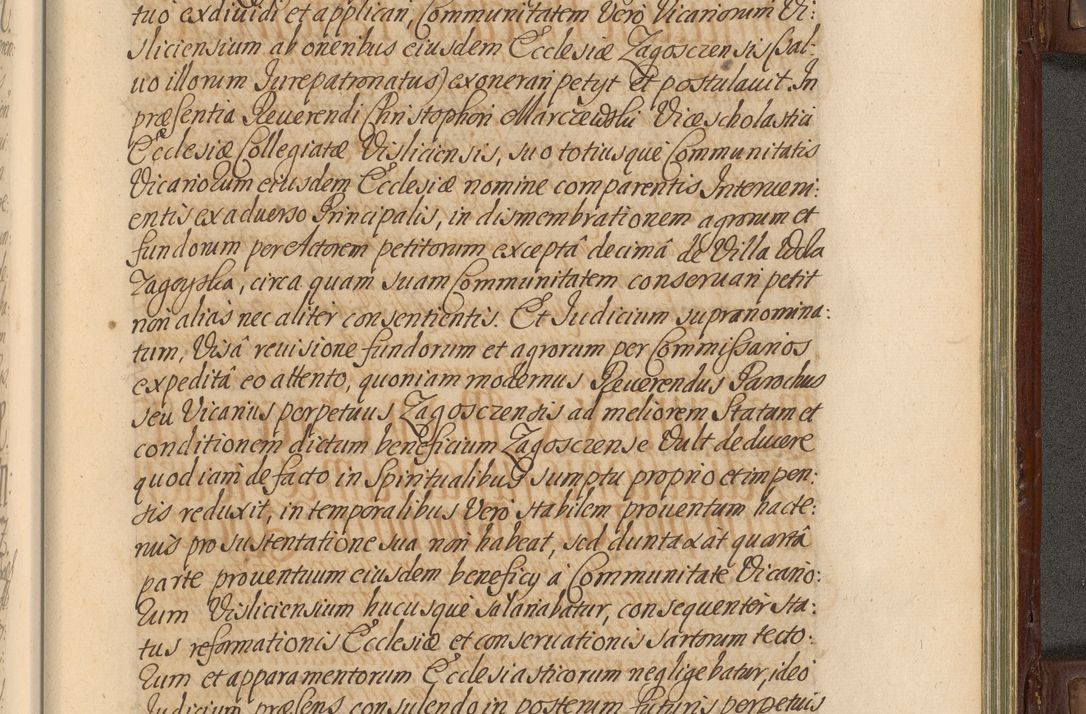 tuo exdiuidi et applicari, Communitatem Vero Vicariorum Vi:
sliciensium ab oneribus eiusdem Ecclesiæ Zagosczensis (sal-
uo illorum Jurepatronatus) exonerari petyt et postulauit. In
præsentia Reuerendi Christophori Marczewski Vicescholastici
Ecclesiæ Collegiatæ Visliciensis, suo totiusque Communitatis
Vicariorum eiusdem Ecclesiæ nomine comparentis Interueni:
entis ex aduerso Principalis, in dismembrationem agrorum et
fundorum per Actorem petitorum exceptâ decimâ de Villa Wola
Zagoyska, circa quam suam Communitatem conseruari petit
non alias nec aliter consentientis. Et Judicium supranomina:
tum, Visâ reuisione fundorum et agrorum per Commissarios
expeditâ eo attento, quoniam modernus Reuerendus Parochus
seu Vicarius perpetuus Zagosczensis ad meliorem Statum et
conditionem dictum beneficium Zagosczense Vult deducere
quod iam de facto in Spiritualibus sumptu proprio et impen:
sis reduxit, in temporalibus Vero stabilem prouentum hacte:
nus pro sustentatione sua non habeat, sed duntaxàt quartâ
parte prouentuum eiusdem beneficy à Communitate Vicario:
rum Visliciensium hucusque salariabatur, consequenter sta:
tus reformationis Ecclesiæ et conseruationis sartorum tecto:
rum et apparamentorum Ecclesiasticorum negligebatur, ideo
Judicium præsens consulendo in posterum futuris perpetuis